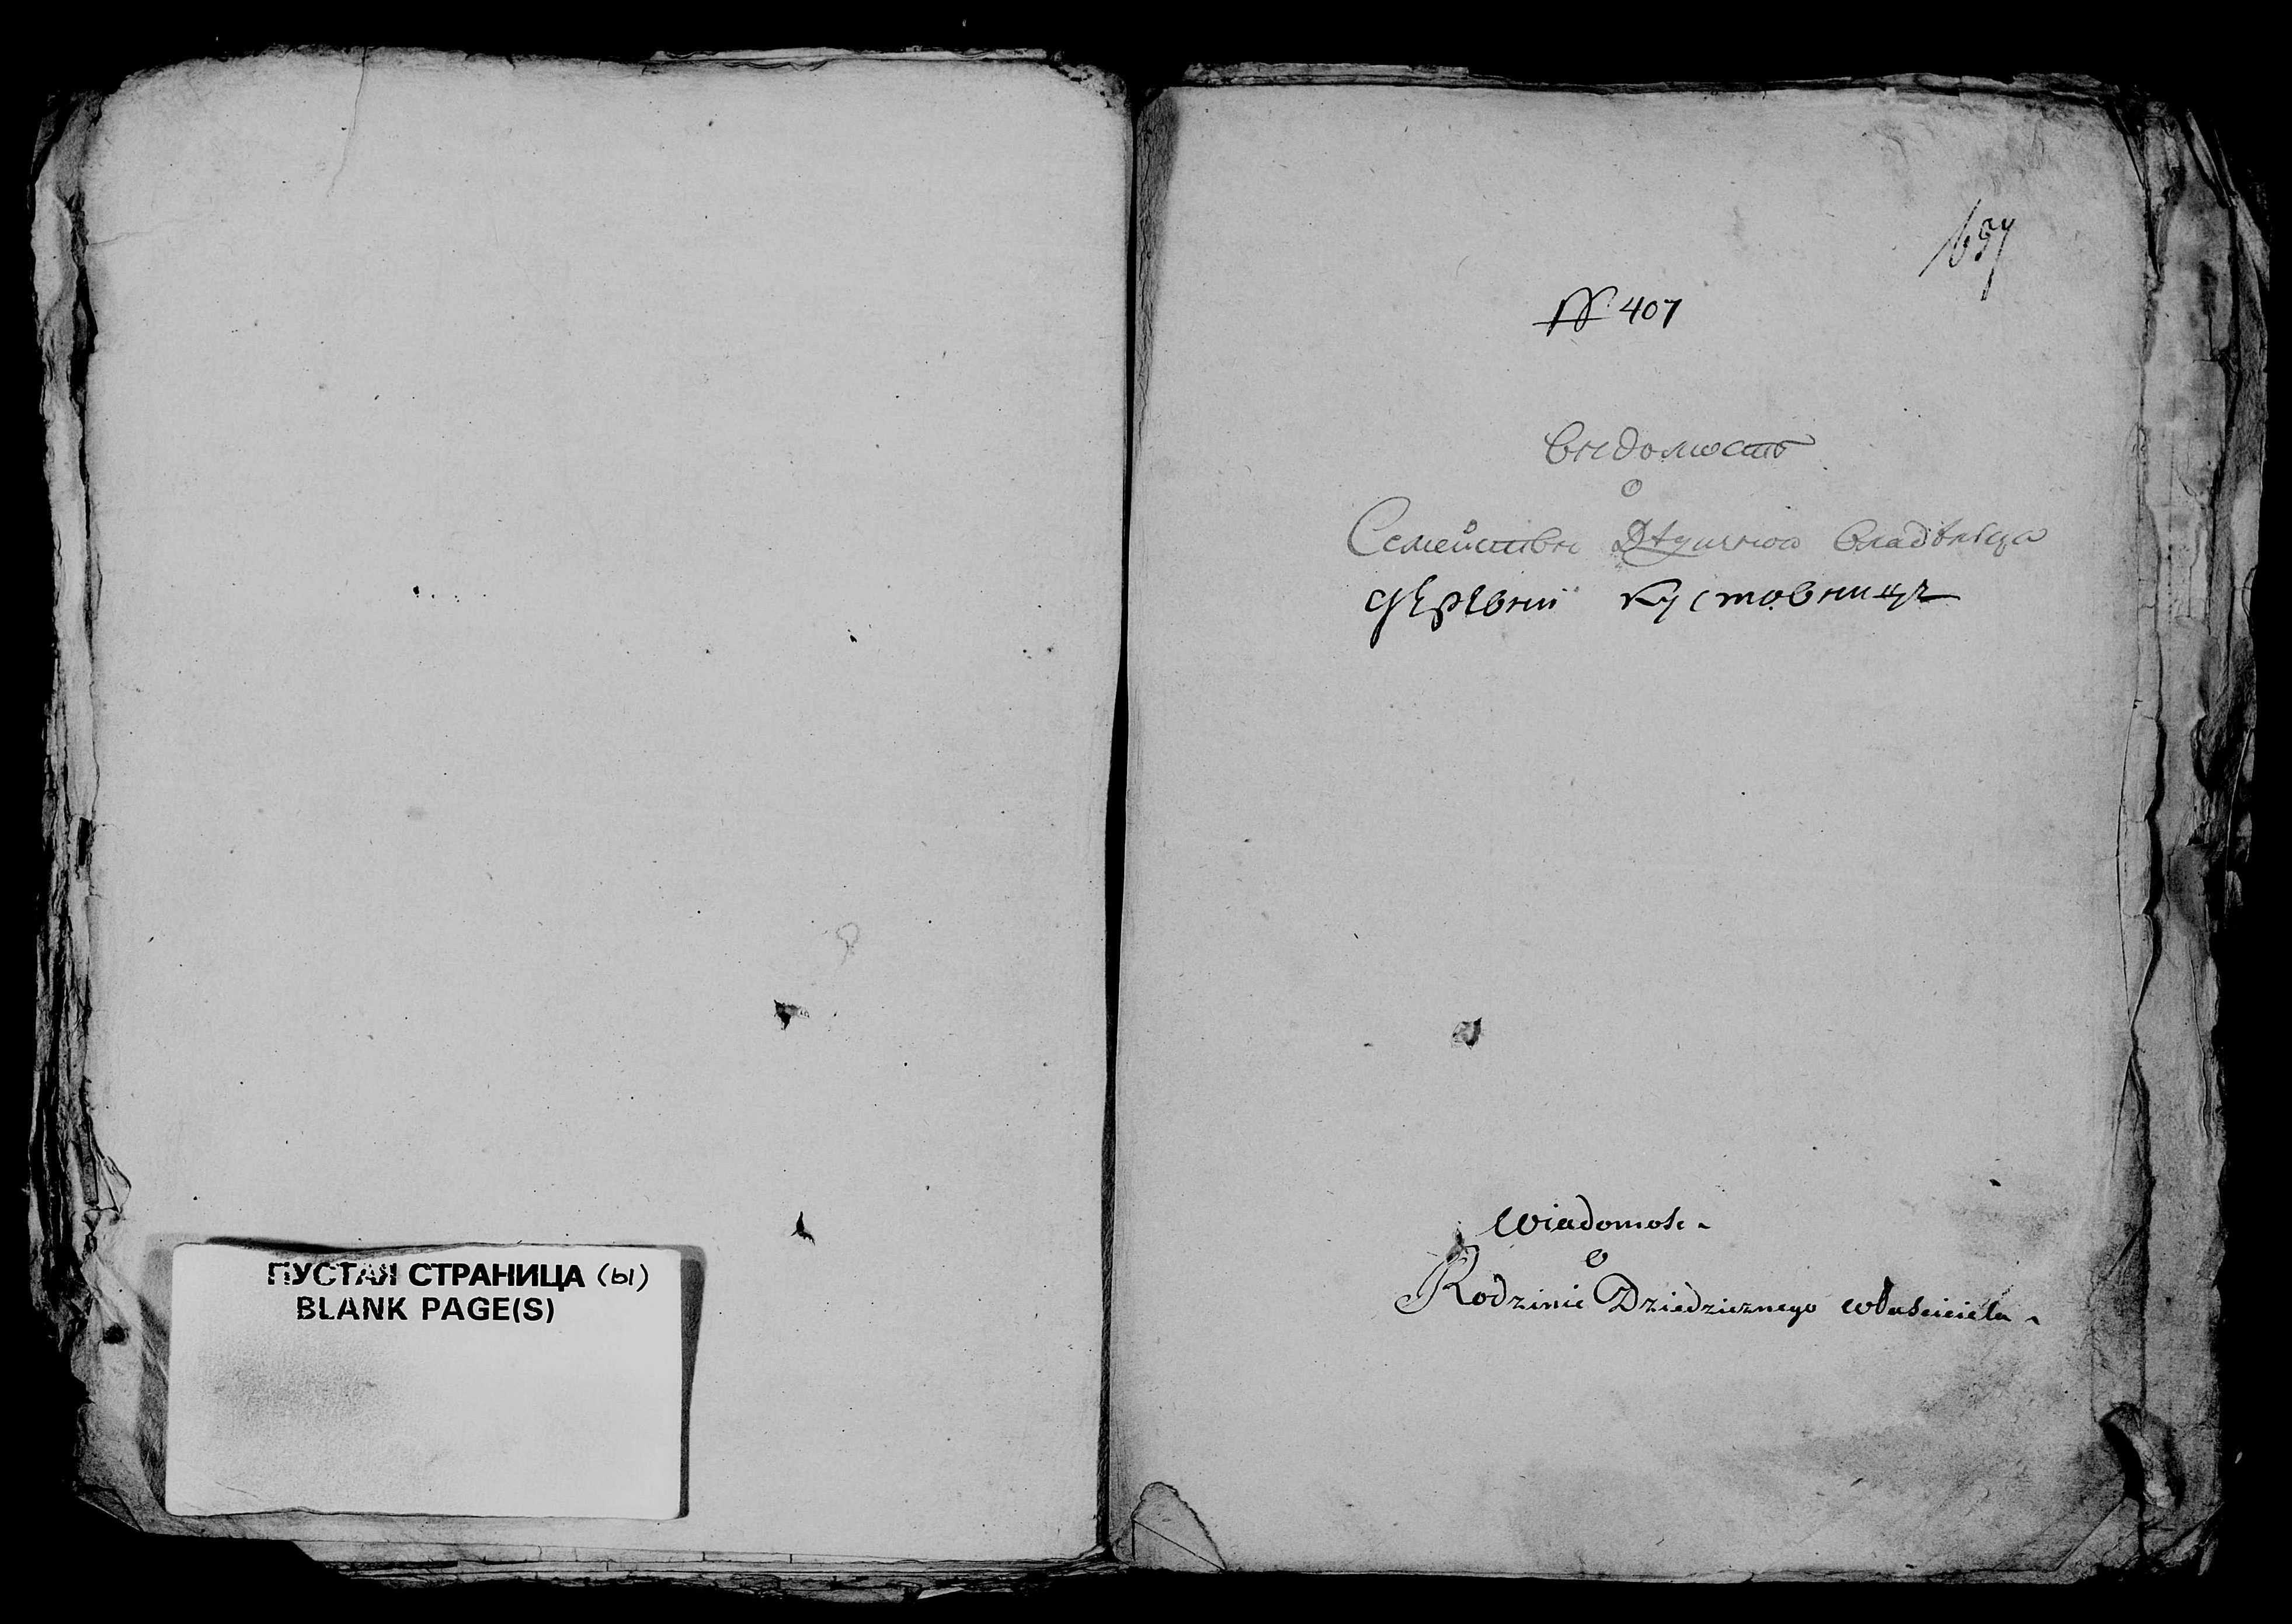 ПУСТАЯ СТРАНИЦА (ы)
BLANK PAGE(S)
657
№ 407
Ведомость
о
Семействе владельца
деревни Кустовниц
Wiadomość
o
Rodzinie Dziedzicznego właściciela